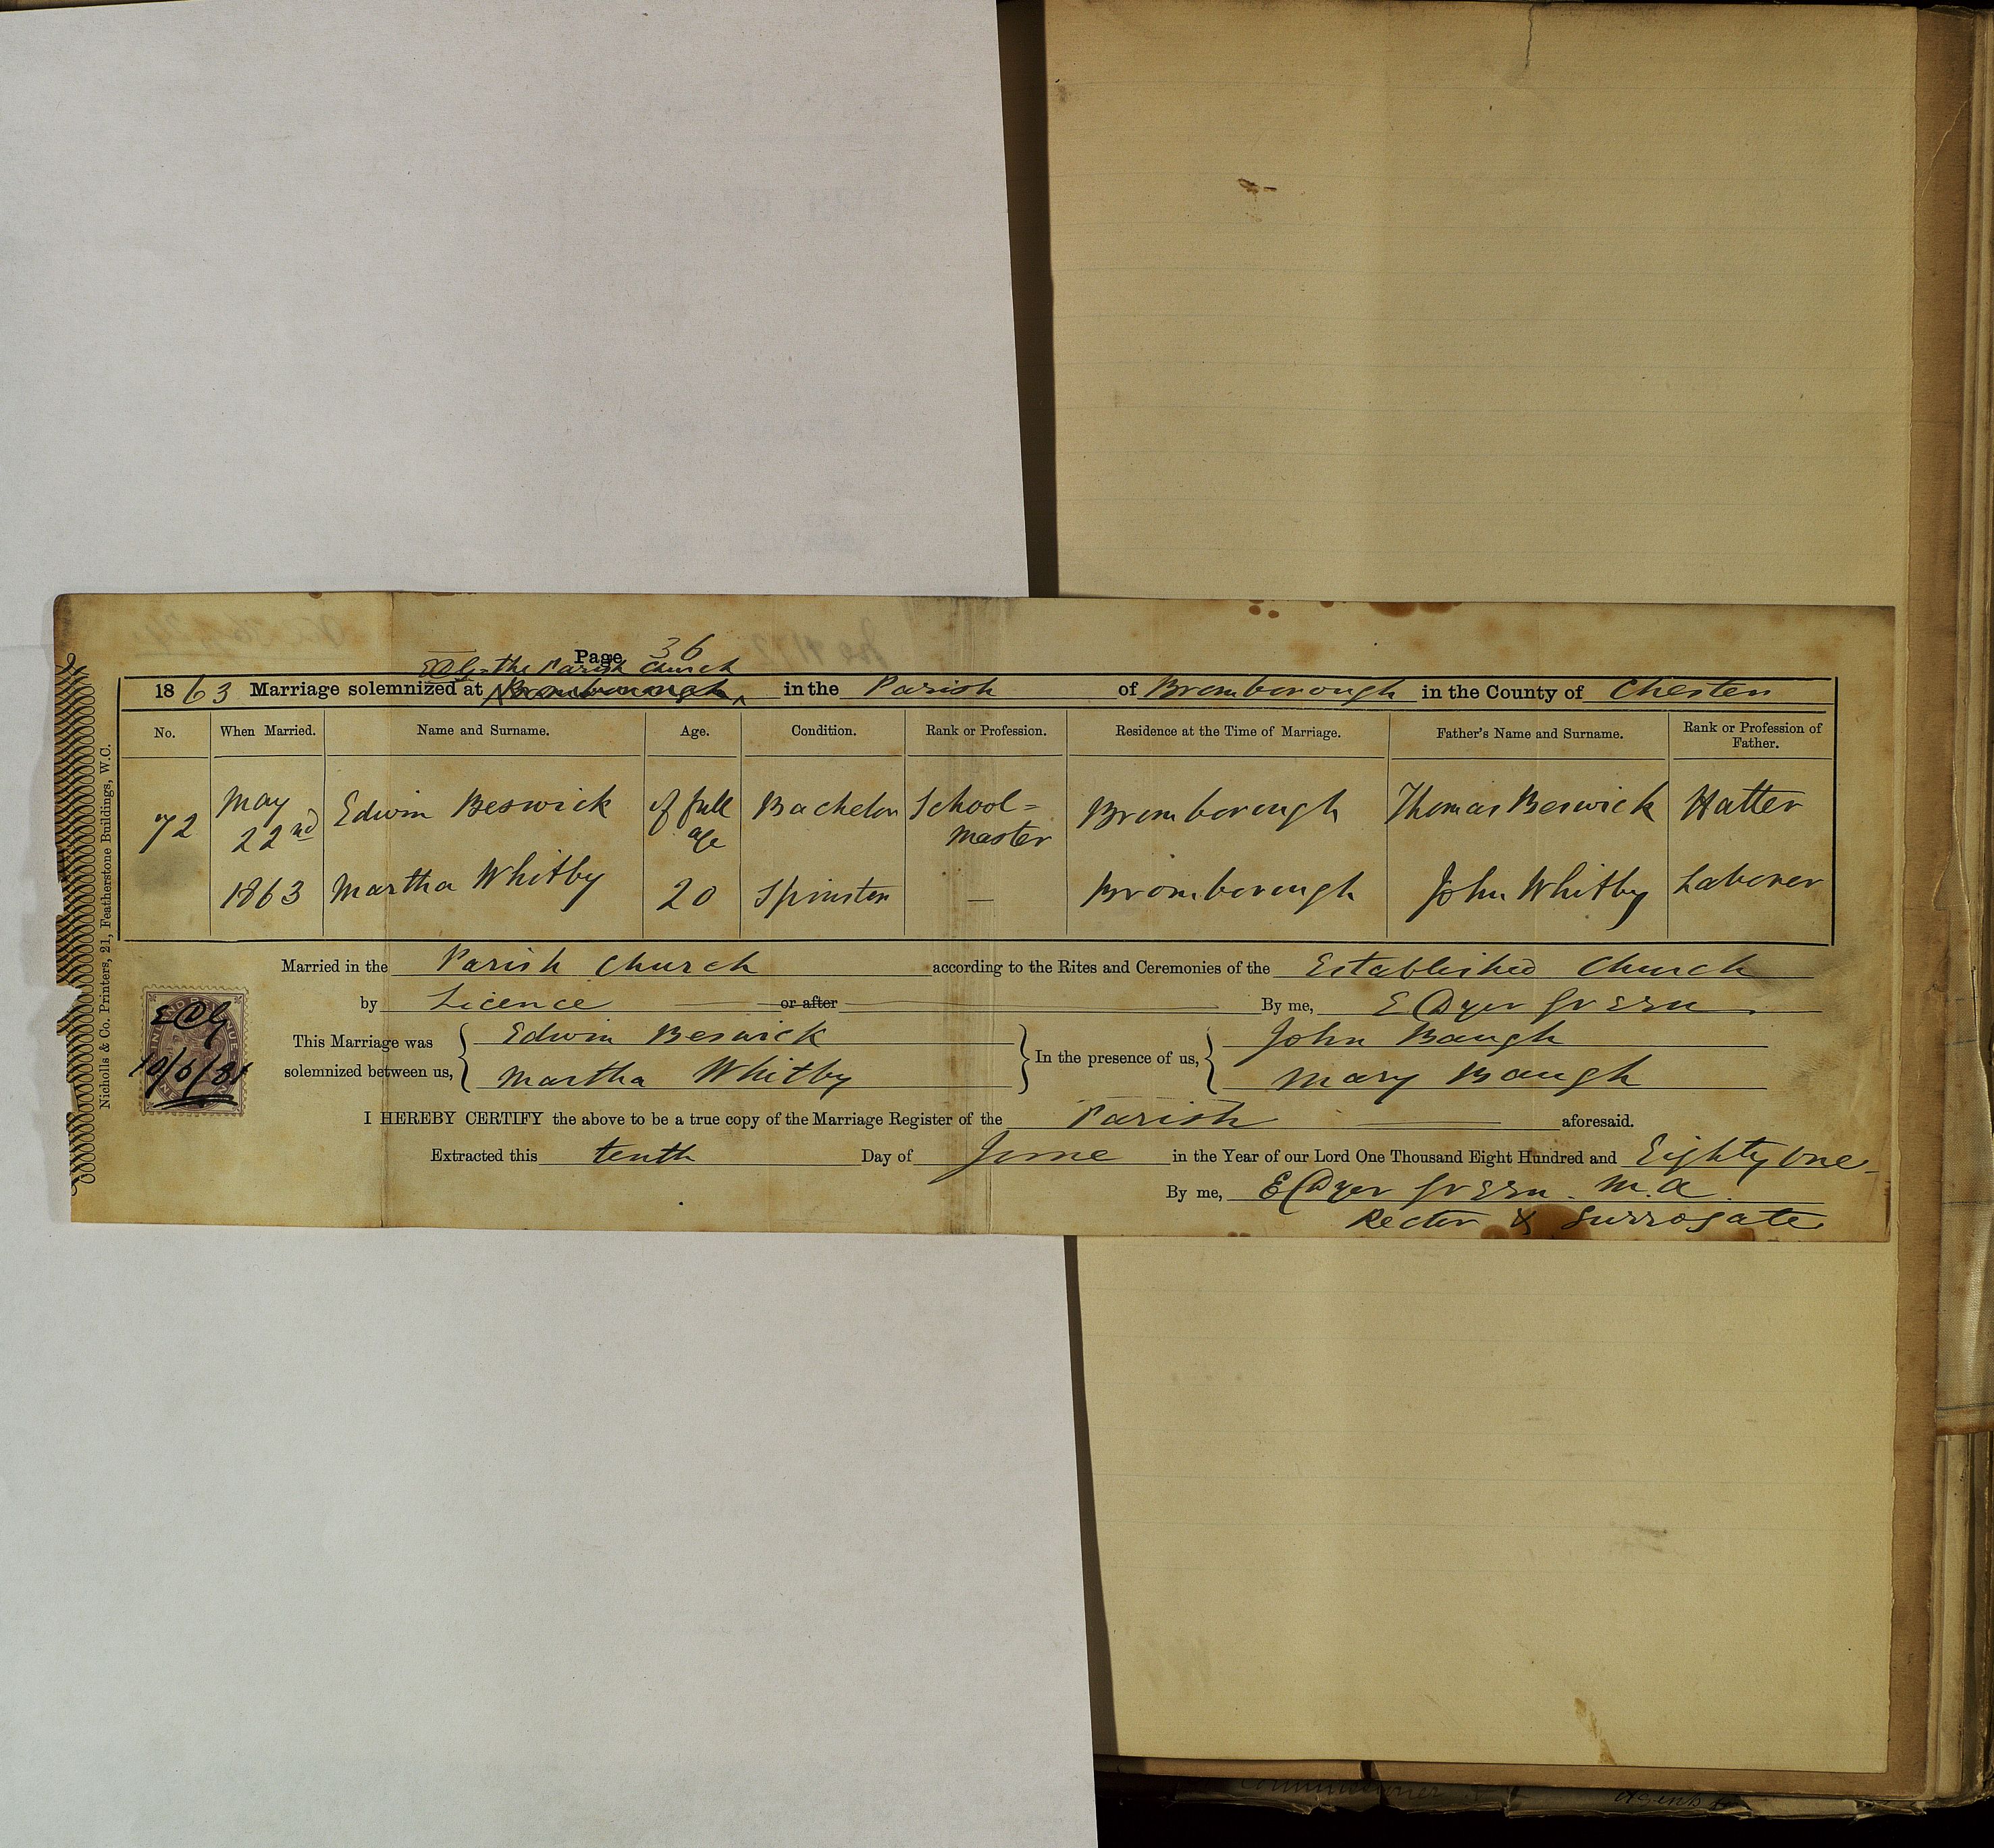 Page 36
EDG = the Parish Church
1863 Marriage solemnized at Bromborough in the Parish of Bromborough in the County of Chester
No. When Married. Name and Surname. Age. Condition. Rank or Profession. Residence at the Time of Marriage. Father's Name and Surname. Rank or Profession of Father.
72 May 22nd Edwin Beswick of full age Bachelor School=master Bromborough Thomas Beswick Hatter
1863 Martha Whitby 20 Spinster — Bromborough John Whitby Laborer
Married in the Parish Church according to the Rites and Ceremonies of the Established Church
by Licence or after By me, E Dyer Green.
This Marriage was solemnized between us, Edwin Beswick In the presence of us, John Baugh
Martha Whitby Mary Baugh
I HEREBY CERTIFY the above to be a true copy of the Marriage Register of the Parish aforesaid.
Extracted this tenth Day of June in the Year of our Lord One Thousand Eight Hundred and Eighty One
By me, E Dyer Green. M.A.
Rector & Surrogate
Nicholls & Co. Printers, 21, Featherstone Buildings, W.C.
INLAND REVENUE
EDG
10/6/81